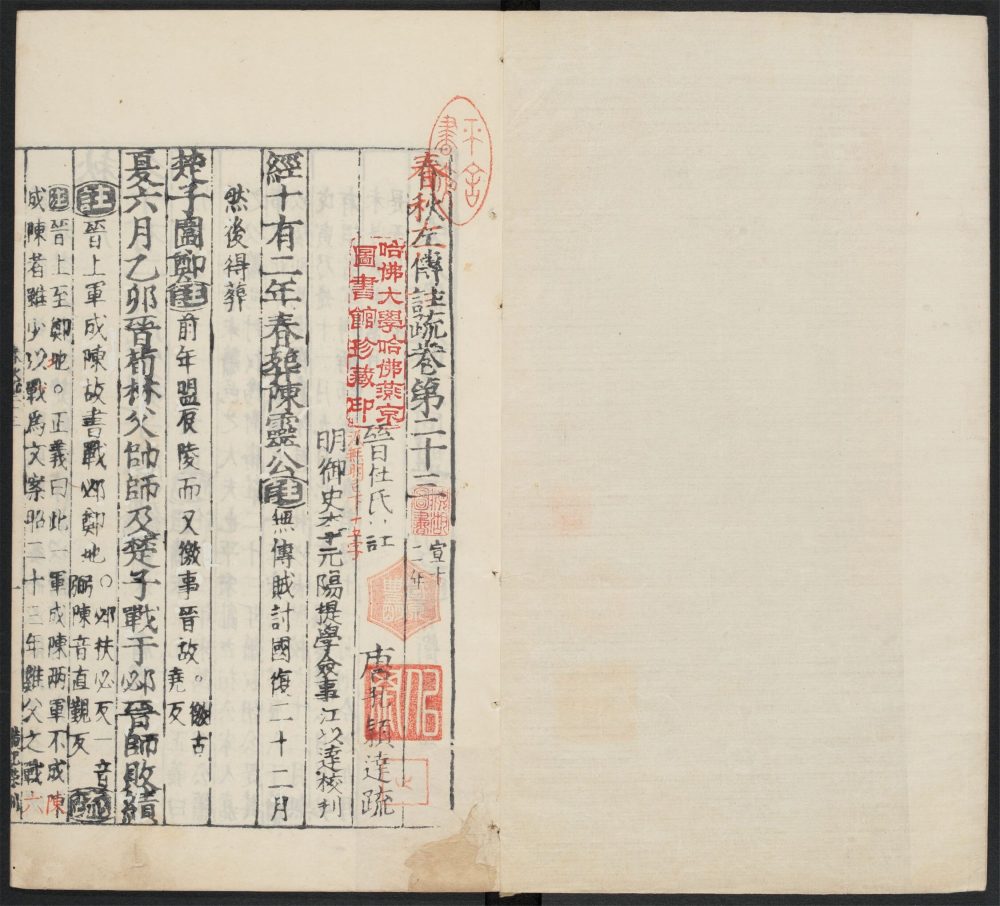 春秋左傳註疏卷第二十三
宣十二年
晉杜氏註
唐孔穎達疏
哈佛大學哈佛燕京
圖書館珍藏印
明御史李元陽提學僉事江以達校刊
經十有二年春葬陳靈公註無傳賊討國復二十二月
然後得葬
楚子圍鄭註前年盟辰陵而又徼事晉故。徼古堯反
夏六月乙卯晉荀林父帥師及楚子戰于邲晉師敗績
註晉上軍成陳故書戰邲鄭地。邲扶必反一音弼陳音直覲反疏
註晉上至鄭地。正義曰此一軍成陳兩軍不成陳
成陳者雖少以戰爲文案昭二十三年雞父之戰六